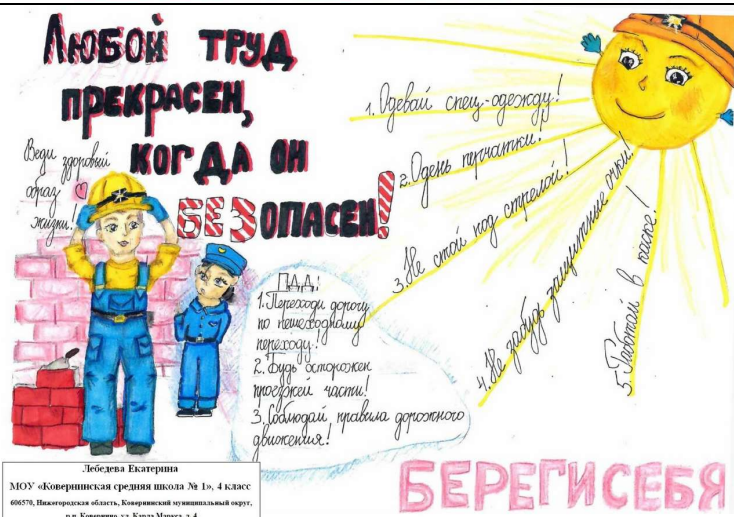 ЛЮБОЙ ТРУД
ПРЕКРАСЕН,
КОГДА ОН
БЕЗОПАСЕН!
Веди здоровый
образ
жизни!
1. Одевай спец-одежду!
2. Одень перчатки!
3. Не стой под стрелой!
4. Не забудь защитные очки!
5. Работай в каске!
ПДД!
1. Переходи дорогу
по пешеходному
переходу!
2. Будь осторожен
проезжей части!
3. Соблюдай правила дорожного
движения!
БЕРЕГИ СЕБЯ
Лебедева Екатерина
МОУ «Ковернинская средняя школа № 1», 4 класс
606570, Нижегородская область, Ковернинский муниципальный округ,
р.п. Ковернино, ул. Карла Маркса, д. 4